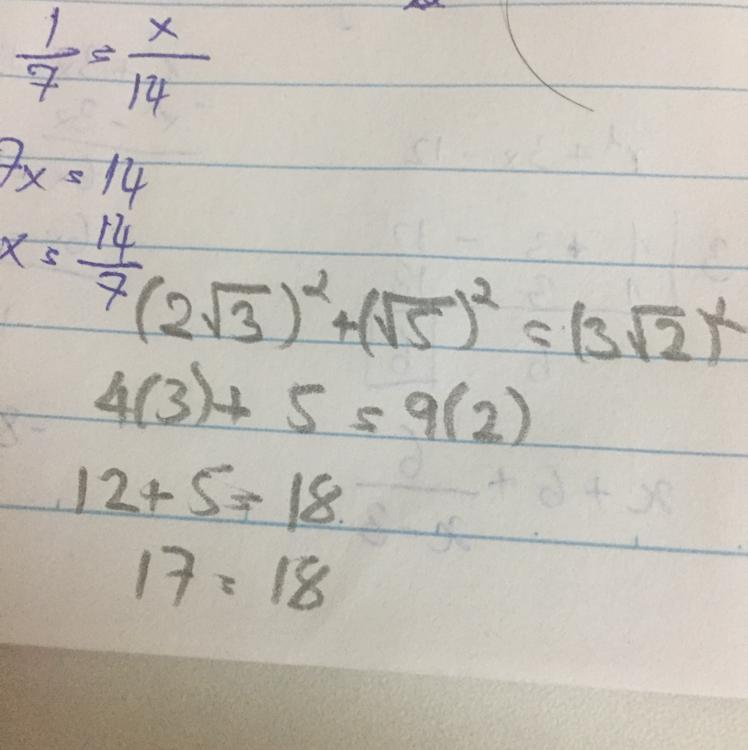 1/7 = x/14
7x = 14
x = 14/7
(2√3)² + (√5)² = (3√2)²
4(3) + 5 = 9(2)
12 + 5 = 18
17 = 18